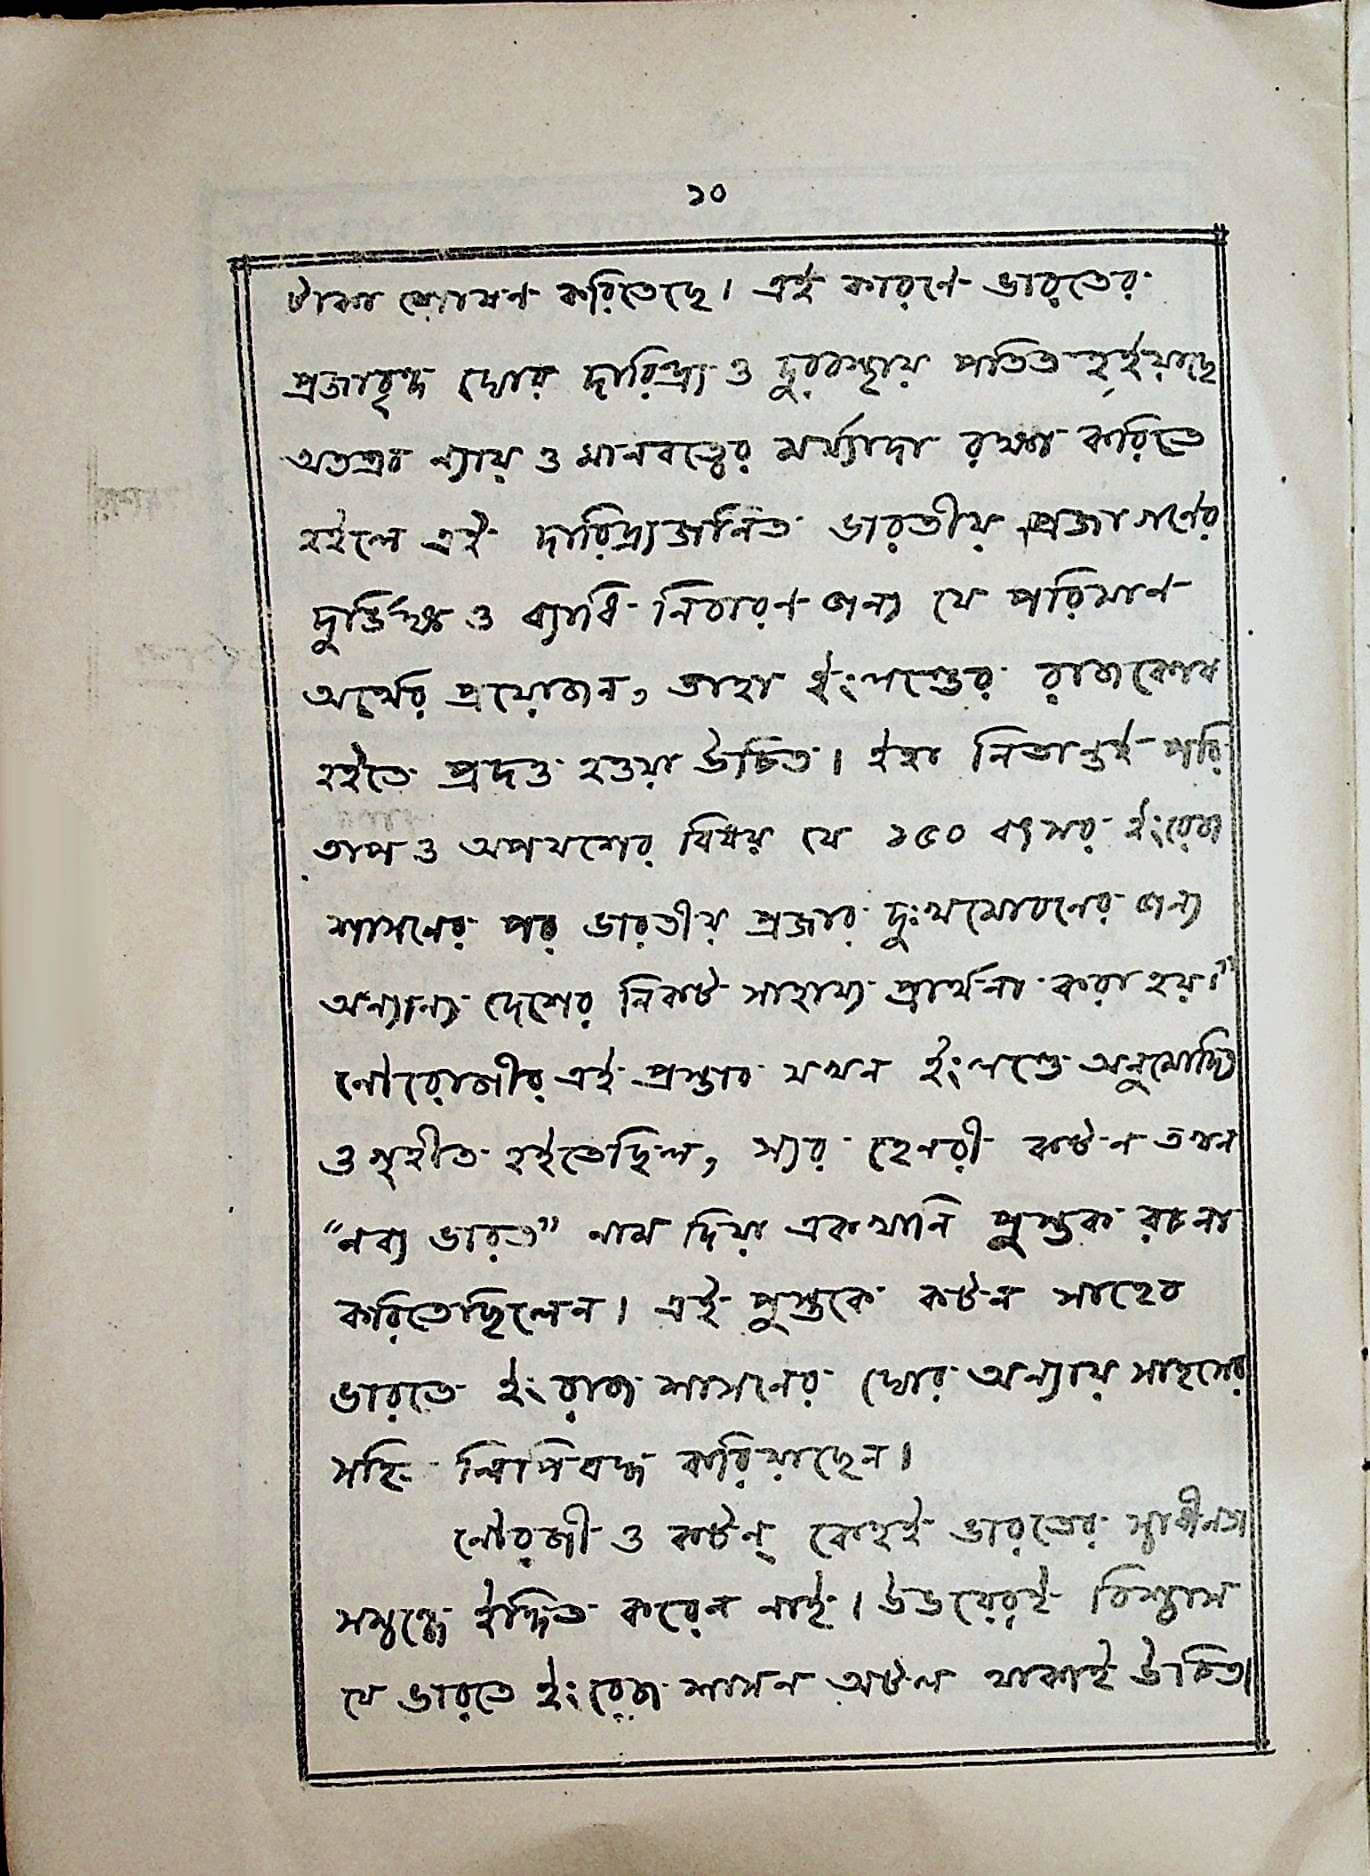 ১০
টাকা শোষণ করিতেছে। এই কারণে ভারতের
প্রজাবৃন্দ ঘোর দারিদ্র্য ও দুরবস্থায় পতিত হইয়াছে
অতএব ন্যায় ও মানবত্বের মর্য্যাদা রক্ষা করিতে
হইলে এই দারিদ্র্যজনিত ভারতীয় প্রজাগণের
দুর্ভিক্ষ ও ব্যাধি নিবারণ জন্য যে পরিমাণ
অর্থের প্রয়োজন, তাহা ইংলণ্ডের রাজকোষ
হইতে প্রদত্ত হওয়া উচিত। ইহা নিতান্তই পরি
তাপ ও অপযশের বিষয় যে ১৫০ বৎসর ইংরেজ
শাসনের পর ভারতীয় প্রজার দুঃখমোচনের জন্য
অন্যান্য দেশের নিকট সাহায্য প্রার্থনা করা হয়।”
নৌরোজীর এই প্রস্তাব যখন ইংলণ্ডে অনুমোদিত
ও গৃহীত হইতেছিল, স্যর হেনরী কটন তখন
“নব্য ভারত” নাম দিয়া একখানি পুস্তক রচনা
করিতেছিলেন। এই পুস্তকে কটন সাহেব
ভারতে ইংরাজ শাসনের ঘোর অন্যায় সাহসের
সহি লিপিবদ্ধ করিয়াছেন।
নৌরজী ও কটন্ কেহই ভারতের স্বাধীনতা
সম্বন্ধে ইঙ্গিত করেন নাই। উভয়েরই বিশ্বাস
যে ভারতে ইংরেজ শাসন অটল থাকাই উচিত।